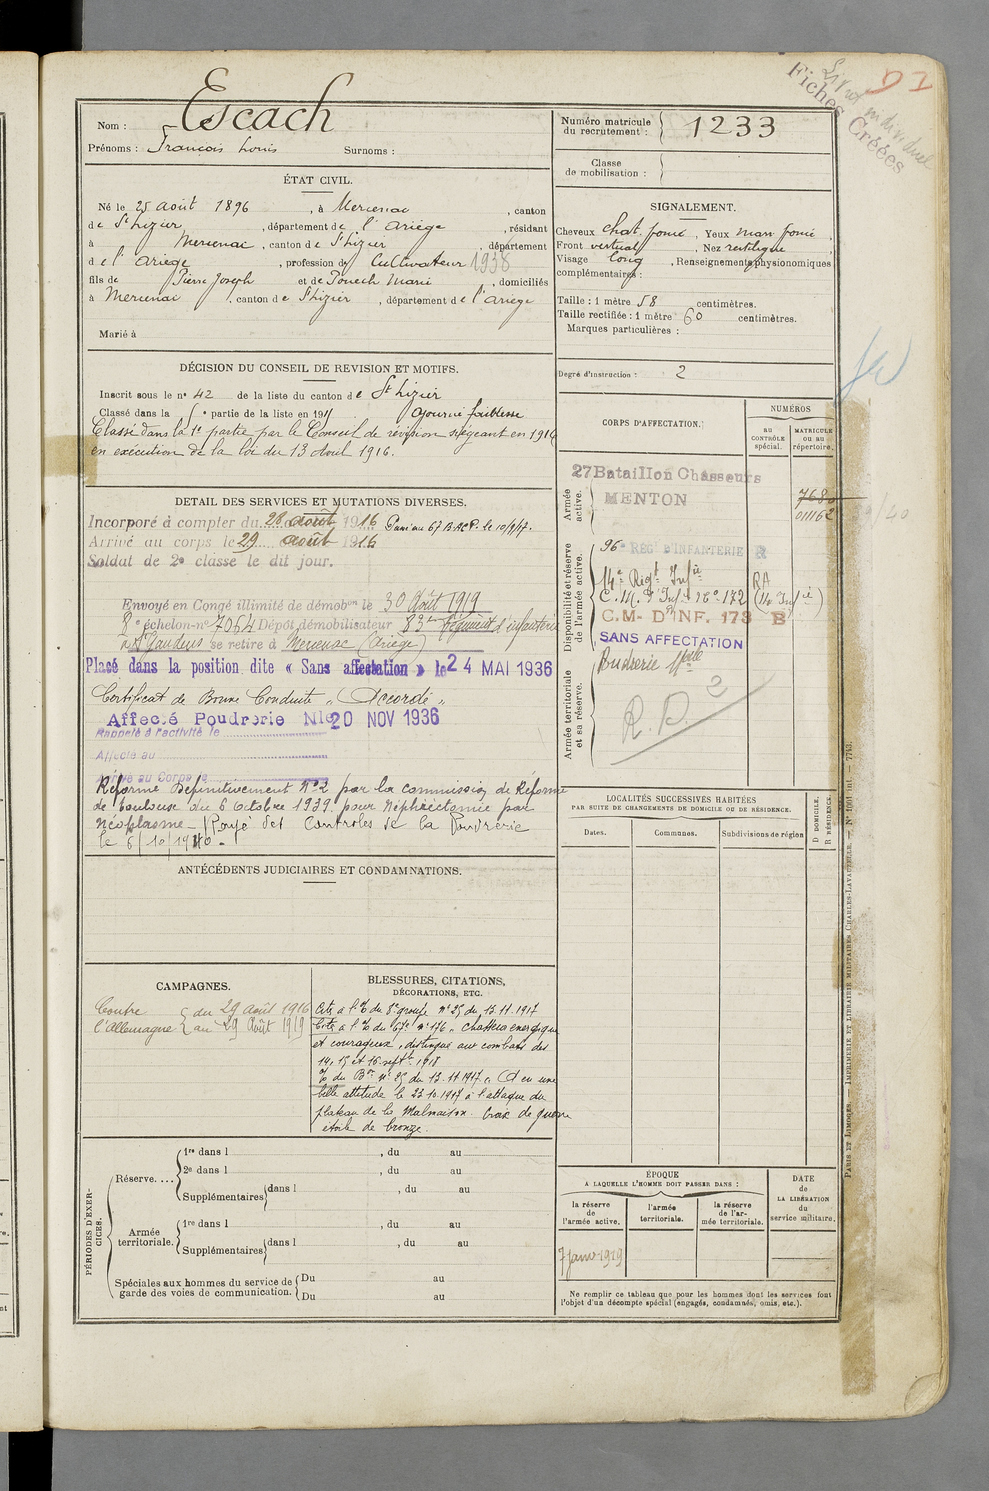 Livret individuel
Fiches Créées
D I
Nom : Escach
Prénoms : François Louis Surnoms :
Numéro matricule du recrutement : 1233
Classe de mobilisation :
ÉTAT CIVIL.
Né le 25 août 1896, à Mercenac, canton
de St Lizier, département de l'Ariège, résidant
à Mercenac, canton de St Lizier, département
de l'Ariège, profession de Cultivateur 1938
fils de Pierre Joseph et de Pouech Marie, domiciliés
à Mercenac, canton de St Lizier, département de l'Ariège
Marié à
SIGNALEMENT.
Cheveux chat. foncé, Yeux mar. foncé,
Front vertical, Nez rectiligne
Visage long, Renseignements physionomiques
complémentaires :
Taille : 1 mètre 58 centimètres.
Taille rectifiée : 1 mètre 60 centimètres.
Marques particulières :
Degré d'instruction : 2
DÉCISION DU CONSEIL DE REVISION ET MOTIFS.
Inscrit sous le no 42 de la liste du canton de St Lizier
Classé dans la e partie de la liste en 191 Ajourné faiblesse
Classé dans la 1e partie par le Conseil de révision siégeant en 1916
en exécution de la loi du 13 Août 1916.
DETAIL DES SERVICES ET MUTATIONS DIVERSES.
Incorporé à compter du 28 août 1916 Passé au 67 B.A.C.P. le 10/9/17.
Arrivé au corps le 29 août 1916
Soldat de 2e classe le dit jour.
Envoyé en Congé illimité de démobon le 30 Août 1919
échelon-no 7064 Dépôt démobilisateur 83e Régiment d'infanterie
St Gaudens se retire à Mercenac (Ariège)
Placé dans la position dite « Sans affectation » le 24 MAI 1936
Certificat de Bonne Conduite "Accordé"
Affecté Poudrerie Nle 20 NOV 1936
Rappelé à l'activité le
Affecté au
Arrivé au Corps le
Réformé Définitivement No2 par la commission de Réforme
de Toulouse du 6 Octobre 1939 pour Néphrectomie par
Néoplasme - Rayé des Controles de la Poudrerie
le 6/10/1940 -
CORPS D'AFFECTATION.
NUMÉROS
AU CONTRÔLE spécial.
MATRICULE OU AU répertoire.
Armée active.
27 Bataillon Chasseurs
MENTON
7680
011162
Disponibilité et réserve de l'armée active.
96e REG D'INFANTERIE R
14e Régt Infie
C.M. d'Infie No 172 RA (14e Infie)
C.M. D'INF. 173 B
SANS AFFECTATION
Poudrerie Nale
Armée territoriale et sa réserve.
R.D. 2
ANTÉCÉDENTS JUDICIAIRES ET CONDAMNATIONS.
LOCALITÉS SUCCESSIVES HABITÉES
PAR SUITE DE CHANGEMENTS DE DOMICILE OU DE RÉSIDENCE.
Dates. Communes. Subdivisions de région
D DOMICILE. R RÉSIDENCE.
CAMPAGNES.
Contre l'Allemagne du 29 août 1916
au 29 Août 1919
BLESSURES, CITATIONS,
DÉCORATIONS, ETC.
Cité à l'O du 8e groupe No 25 du 13.11.1917
Cité à l'O du 67e No 176 "chasseur énergique
et courageux, distingué aux combats des
14, 15 et 16 septbre 1918
O du Bon No 25 du 13.11.1917 "A eu une
belle attitude le 23.10.1917 à l'attaque du
plateau de la Malmaison. Croix de guerre
étoile de bronze.
PÉRIODES D'EXERCICES.
Réserve....
1re dans l , du au
2e dans l , du au
Supplémentaires dans l , du au
Armée territoriale.
1re dans l , du au
Supplémentaires dans l , du au
Spéciales aux hommes du service de garde des voies de communication.
Du au
Du au
ÉPOQUE
A LAQUELLE L'HOMME DOIT PASSER DANS :
la réserve de l'armée active.
l'armée territoriale.
la réserve de l'armée territoriale.
DATE de LA LIBÉRATION du service militaire.
7 janv. 1919
Ne remplir ce tableau que pour les hommes dont les services font
l'objet d'un décompte spécial (engagés, condamnés, omis, etc.).
PARIS ET LIMOGES. — IMPRIMERIE ET LIBRAIRIE MILITAIRES CHARLES-LAVAUZELLE. — No 1001 int. — 7743.